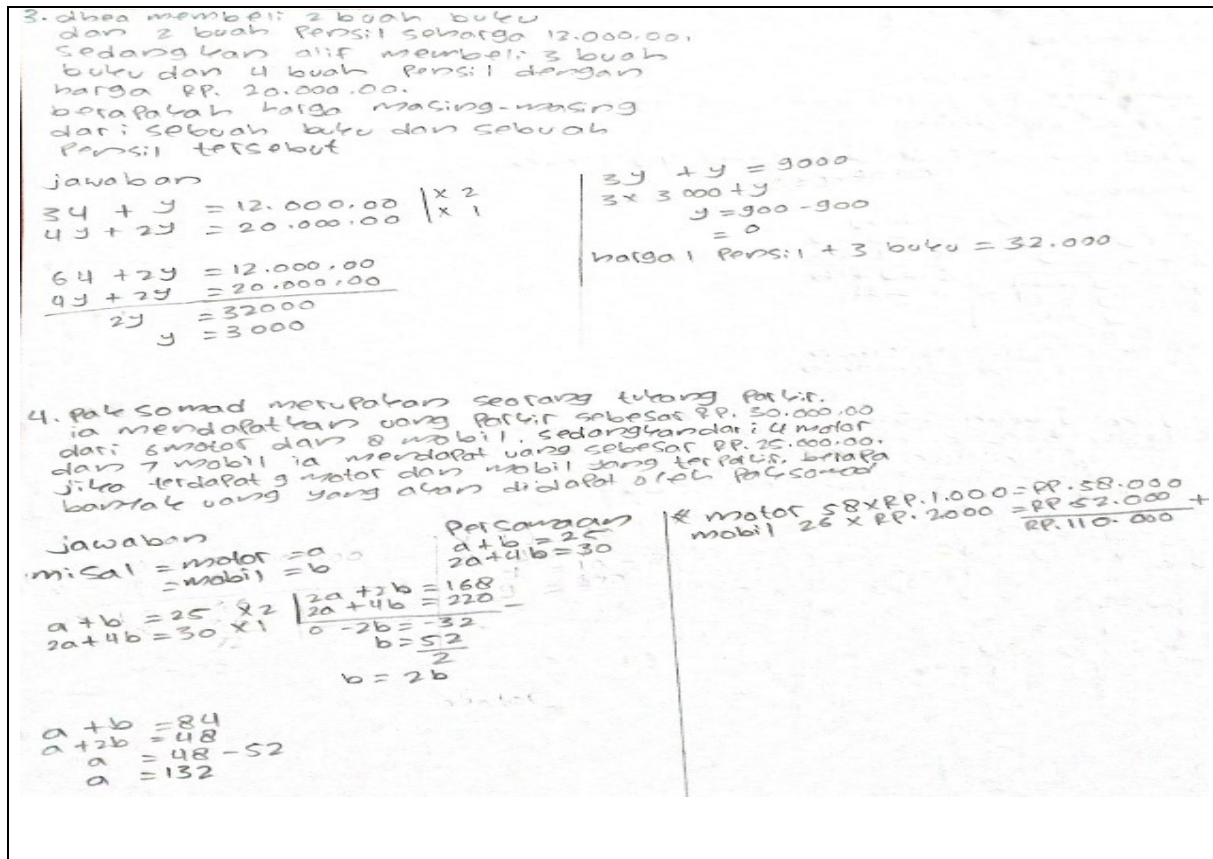 3. dhea membeli 2 buah buku
dan 2 buah Pensil seharga 12.000,00,
sedangkan alif membeli 3 buah
buku dan 4 buah Pensil dengan
harga RP. 20.000.00.
berapakah harga masing-masing
dari sebuah buku dan sebuah
Pensil tersebut
jawaban
34 + y = 12.000,00 | x 2
4y + 2y = 20.000,00 | x 1
64 + 2y = 12.000,00
4y + 2y = 20.000,00
2y = 32000
y = 3000
3y + y = 9000
3x 3000 + y
y = 900 - 900
= 0
harga 1 Pensil + 3 buku = 32.000
4. Pak somad merupakan seorang tukang Parkir.
ia mendapatkan uang Parkir sebesar RP. 30.000.00
dari 6 motor dan 8 mobil. sedangkan dari 4 motor
dan 7 mobil ia mendapat uang sebesar RP. 25.000.00.
jika terdapat 9 motor dan mobil yang terparkir. berapa
banyak uang yang akan didapat oleh Pak somad
jawaban
misal = motor = a
= mobil = b
Persamaan
a + b = 25
2a + 4b = 30
a + b = 25 x2 | 2a + 2b = 168
2a + 4b = 30 x1 | 2a + 4b = 220 -
0 - 2b = -32
b = 52
2
b = 2b
a + b = 84
a + 2b = 48
a = 48 - 52
a = 132
* motor 58 x RP. 1.000 = RP. 58.000
mobil 26 x RP. 2000 = RP 52.000 +
RP. 110.000